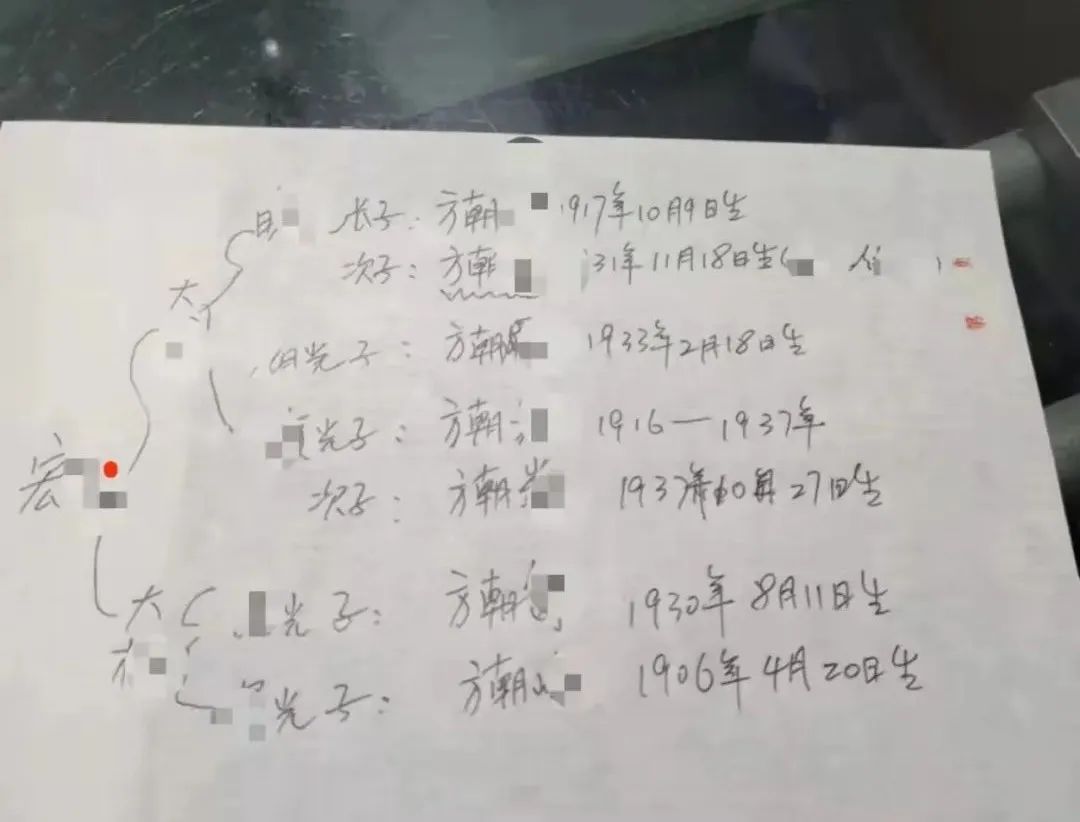 长子：方朝 1917年10月9日生
大
次子：方朝 31年11月18日生（
光子：方朝 1933年2月18日生
光子：方朝 1916—1937年
宏
次子：方朝 1937年10月27日生
大 光子：方朝 1930年8月11日生
光子：方朝 1906年4月20日生